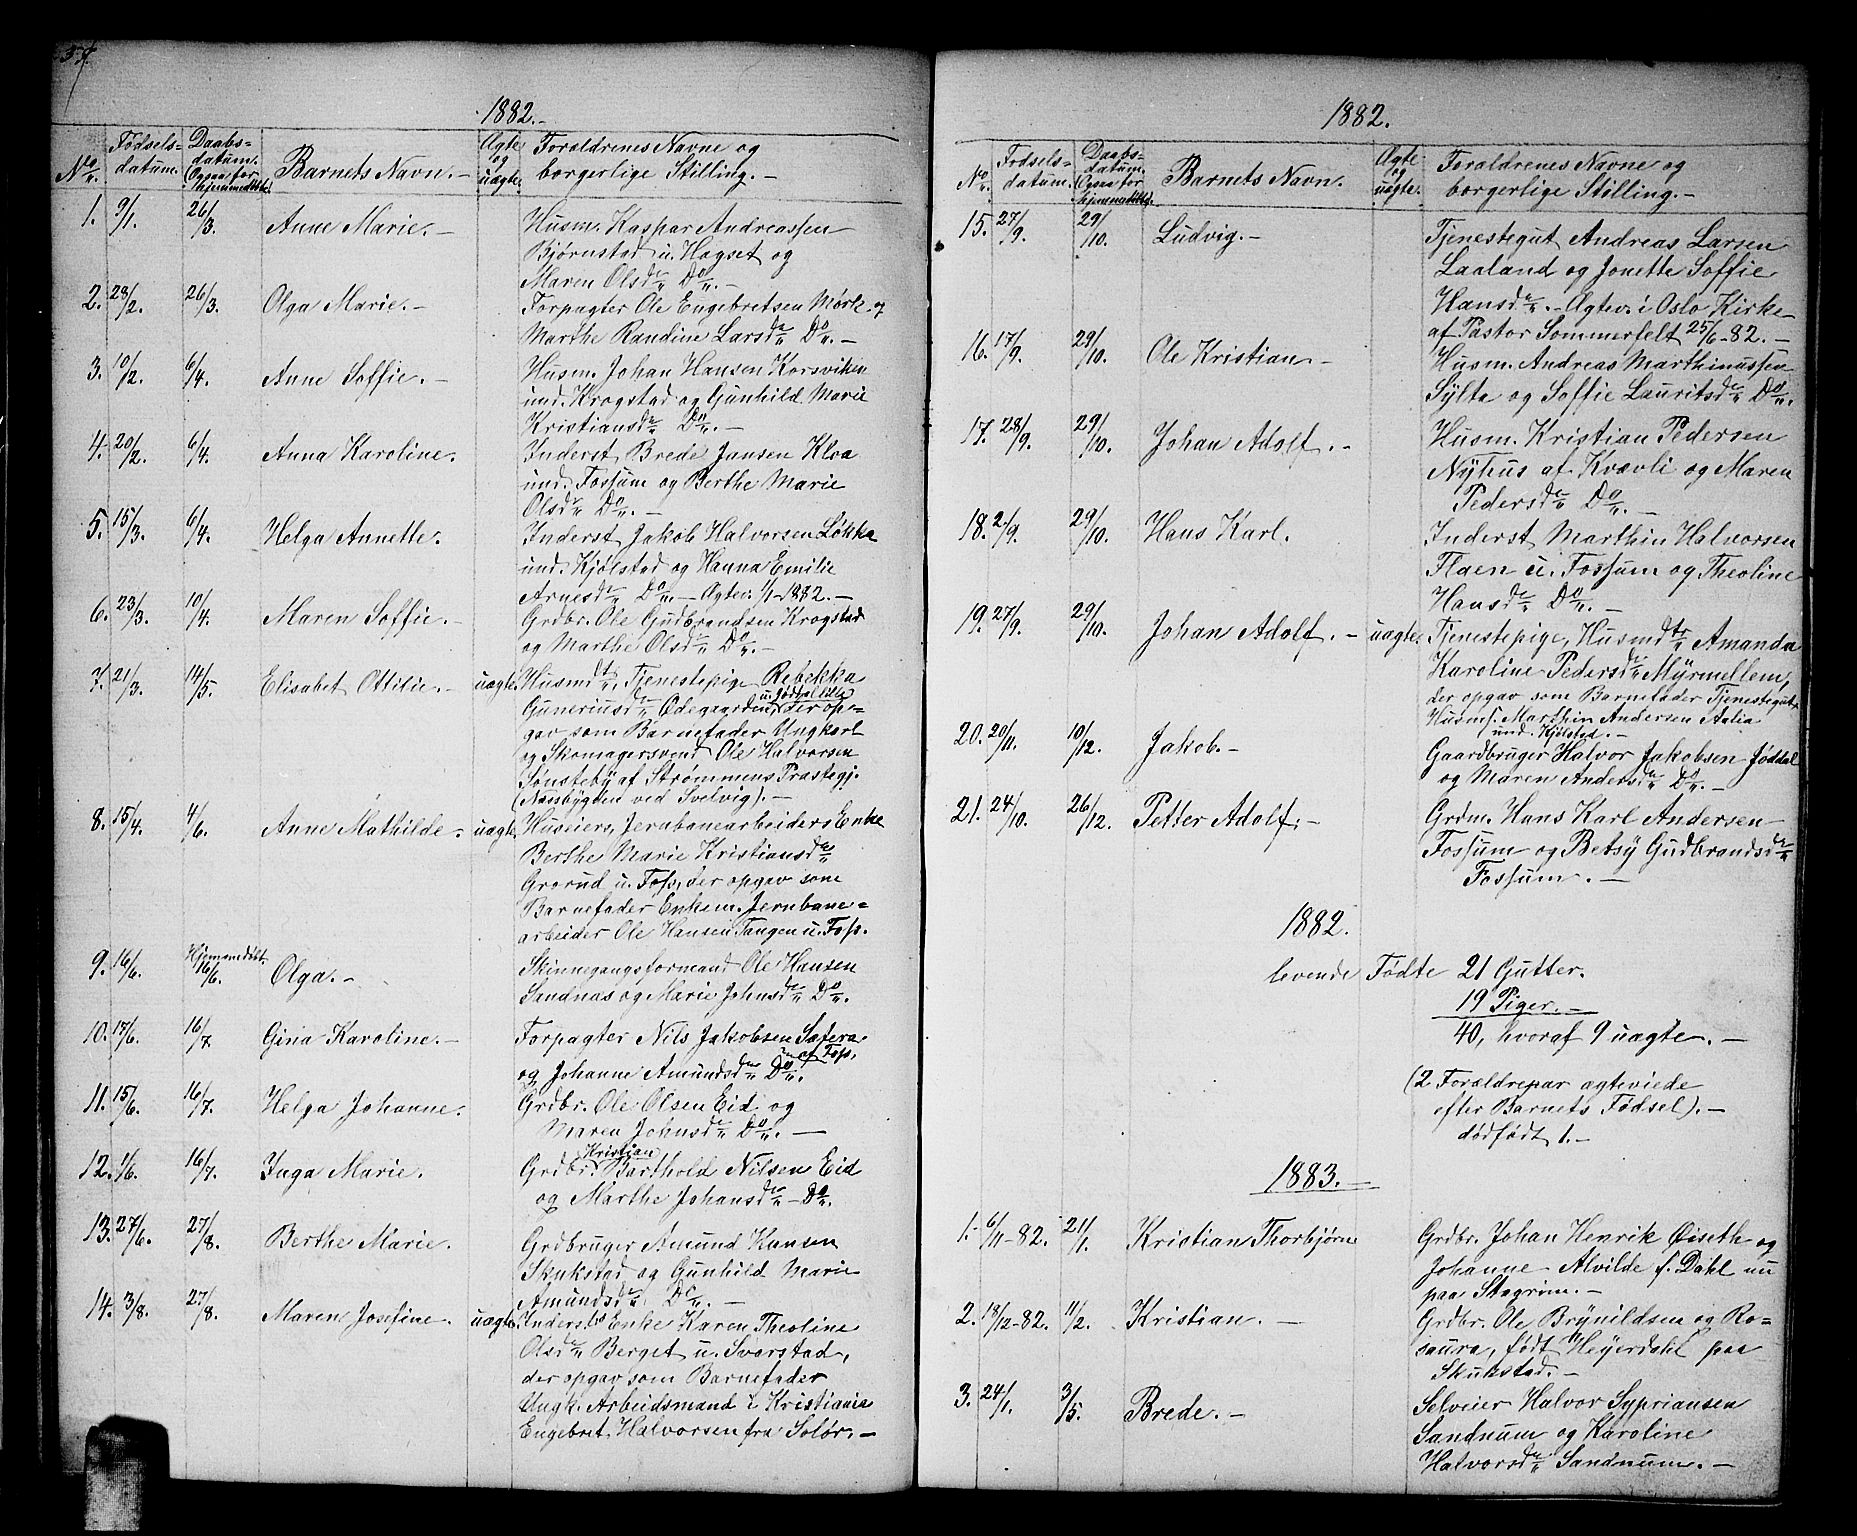 1882.-
No. Fødsels-datum. Daabs-datum. (Ogsaa for hjemmedøbte) Barnets Navn.- Ægte og uægte. Forældrenes Navne og borgerlige Stilling.-
1. 9/1. 26/3. Anne Marie.- Husm. Kaspar Andreassen
Bjørnstad u. Hogset og
Maren Olsdr Do.-
2. 28/2. 26/3. Olga Marie.- Forpagter Ole Engebretsen Mørk og
Marthe Randine Larsdr Do.-
3. 10/2. 6/4. Anne Soffie.- Husm. Johan Hansen Korsviken
und. Krogstad og Gunhild Marie
Kristiansdr Do.-
4. 20/2. 6/4. Anna Karoline. Inderst Brede Jansen Kloa
und. Fossum og Berthe Marie
Olsdr Do.-
5. 15/3. 6/4. Helga Annette. Inderst Jakob Halvorsen Løkka
und. Kjølstad og Hanna Emilie
Arnesdr Do.- Ægtev. 1/1-1882.-
6. 23/3. 10/4. Maren Soffie.- Grdbr. Ole Gudbrandsen Krogstad
og Marthe Olsdr Do.-
7. 21/3. 14/5. Elisabet Ottilie.- uægte. Husmdtr, Tjenestepige Rebekka
Guneriusdr Ødegaarden u. Jødhal lille, der op-
gav som Barnefader Ungkarl
og Skomagersvend Ole Halvorsen
Sønsteby af Strømmens Præstegj.
(Næssbygden ved Svelvig).-
8. 15/4. 4/6. Anne Mathilde- uægte. Huseiers, Jernbanearbeiders Enke
Berthe Marie Kristiansdr
Grorud u. Foss, der opgav som
Barnefader Enkem. Jernbane-
arbeider Ole Hansen Tangen u. Foss.
9. 16/6. Hjemmedøbt. 16/6. Olga.- Skinnegangsformand Ole Hansen
Sandnæs og Marie Johnsdr Do.
10. 17/6. 16/7. Gina Karoline.- Forpagter Nils Jakobsen Sætera
af Foss,
og Johanne Amundsdr Do.
11. 15/6. 16/7. Helga Johanne. Grdbr. Ole Olsen Eid og
Maren Johnsdr Do.-
12. 1/6. 16/7. Inga Marie. Grdbr. Kristian Barthold Nilsen Eid
og Marthe Johansdr- Do.
13. 27/6. 27/8. Berthe Marie. Grdbruger Amund Hansen
Skukstad og Gunhild Marie
Amundsdr Do.-
14. 3/8. 27/8. Maren Josefine. uægte. Inderst Enke Karen Theoline
Olsdr Berget u. Svarstad,
der opgav som Barnefader
Ungk. Arbeidsmand i Kristiania
Engebret Halvorsen fra Solør.-
1882.
No. Fødsels-datum. Daabs-datum. (Ogsaa for hjemmedøbte). Barnets Navn. Ægte og uægte. Forældrenes Navne og borgerlige Stilling.-
15. 27/9. 29/10. Ludvig.- Tjenestegut Andreas Larsen
Laaland og Jonette Soffie
Hansdr.- Ægtev. i Oslo Kirke
af Pastor Sommerfelt 25/6-82.-
16. 17/9. 29/10. Ole Kristian.- Husm. Andreas Marthinussen
Sylta og Soffie Lauritsdr Do.
17. 28/9. 29/10. Johan Adolf.- Husm. Kristian Pedersen
Nyhus af Kvævli og Maren
Pedersdr Do.-
18. 2/9. 29/10. Hans Karl. Inderst Marthin Halvorsen
Flaen u. Fossum og Theoline
Hansdr Do.-
19. 27/9. 29/10. Johan Adolf.- uægte. Tjenestepige, Husmdtr Amanda
Karoline Pedersdr Myrmellem,
der opgav som Barnefader Tjenestegut,
Husms. Marthin Andersen Aalia
und. Kjølstad.-
20. 20/11. 10/12. Jakob.- Gaardbruger Halvor Jakobsen Jøddal
og Maren Andersdr Do.-
21. 24/10. 26/12. Petter Adolf.- Grdm. Hans Karl Andersen
Fossum og Betsy Gudbrandsdr
Fossum.-
1882.
levende Fødte 21 Gutter.
19 Piger.-
40, hvoraf 9 uægte.-
(2 Forældrepar ægteviede
efter Barnets Fødsel).-
dødfødt 1.-
1883.-
1. 6/11-82. 21/1. Kristian Thorbjørn Grdbr. Johan Henrik Øiseth og
Johanne Alvilde f. Dahl nu
paa Stagrim.-
2. 18/12-82. 11/2. Kristian.- Grdbr. Ole Brynildsen og Ro-
saura, født Heyerdahl paa
Skukstad.-
3. 24/1. 3/5. Brede.- Selveier Halvor Sypriansen
Sandnum og Karoline
Halvorsdr Sandnum.-